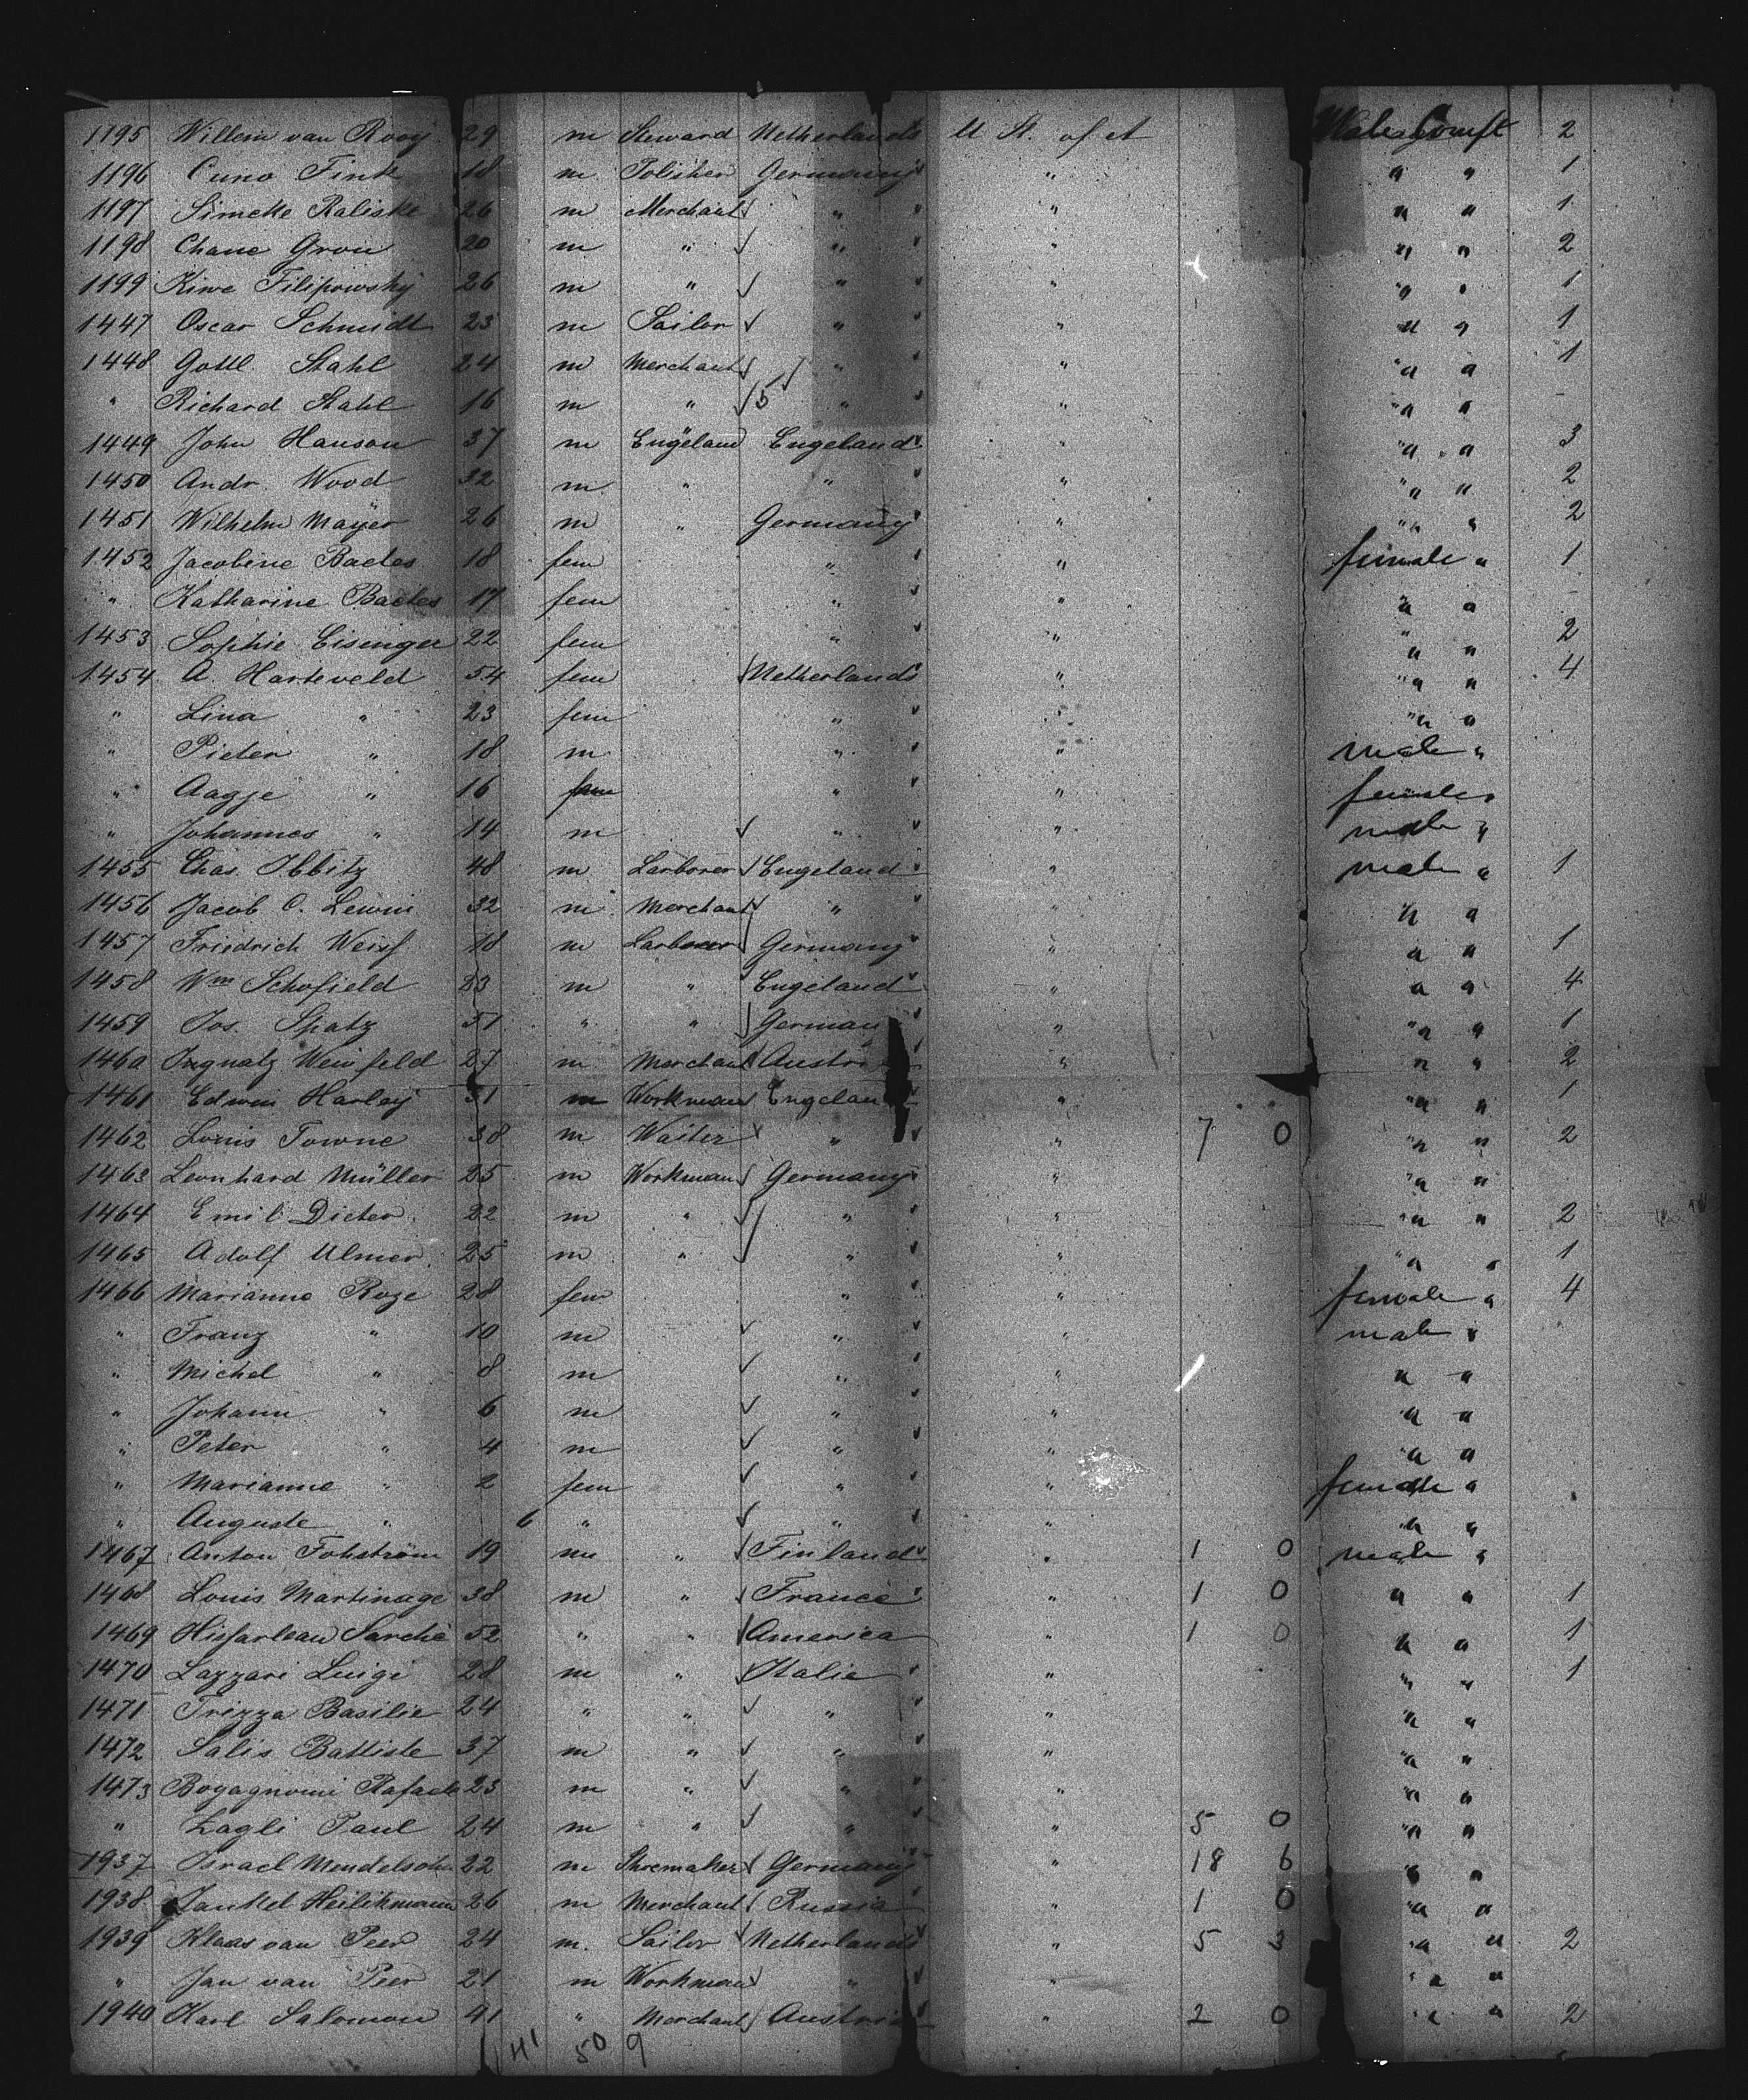 1195 Willem van Rooy 29 m Steward Netherlands U St. of A Male Compt 2
1196 Cuno Fink 18 m. Polisher Germany " " " 1
1197 Simcke Raliske 26 m Merchant " " " " 1
1198 Chane Grou 20 m " " " " " 2
1199 Kiwe Filipowsky 26 m " " " " " 1
1447 Oscar Schmidt 23 m Sailor " " " " 1
1448 Gottl. Stahl 24 m Merchant " " " " 1
" Richard Stahl 16 m " 5 " " " " -
1449 John Hanson 37 m Engeland Engeland " " " 3
1450 Andr. Wood 32 m " " " " " 2
1451 Wilhelm Mayer 26 m " Germany " " " 2
1452 Jacobine Bactes 18 fem " " female " 1
" Katharine Bactes 17 fem " " " " -
1453 Sophie Eisinger 22 fem " " " " 2
1454 A. Harteveld 54 fem Netherlands " " " 4
" Lina " 23 fem " " " "
" Pieter " 18 m " " male "
" Aagje " 16 fem " " female "
" Johannes " 14 m " " male "
1455 Chas. Ibbitz 48 m Larborer Engeland " male " 1
1456 Jacob C. Lewin 32 m Merchant " " " "
1457 Friedrich Weiss 18 m Larborer Germany " " " 1
1458 Wm Schofield 23 m " Engeland " " " 4
1459 Jos. Spatz 51 " " German " " " 1
1460 Ingnatz Weinfeld 27 m Merchant Austri " " " 2
1461 Edwin Harley 31 m Workman Engelan " " " 1
1462 Louis Towne 38 m Waiter " " 7 0 " " 2
1463 Leonhard Müller 25 m Workman Germany " " "
1464 Emil Dieter 22 m " " " " " 2
1465 Adolf Ulmer 25 m " " " " " 1
1466 Marianne Roge 28 fem " " female " 4
" Franz " 10 m " " male "
" Michel " 8 m " " " "
" Johann " 6 m " " " "
" Peter " 4 m " " " "
" Marianne " 2 fem " " female "
" Auguste " 6 " " " " "
1467 Anton Fohström 19 m " Finland " 1 0 male "
1468 Louis Martinage 38 m " France " 1 0 " " 1
1469 Sarché 52 " " America " 1 0 " " 1
1470 Lazzari Luigi 28 m " Italie " " " 1
1471 Trizza Basilie 24 " " " " " "
1472 Salis Battiste 37 m " " " " "
1473 Bogagnomi Rafaele 23 m " " " " "
" Zagli Paul 24 m " " " 5 0 " "
1937 Israel Mendelsohn 22 m Shoemaker Germany " 18 6 " "
1938 Jankel Heilikmann 26 m Merchant Russia " 1 0 " "
1939 Klaas van Peer 24 m. Sailor Netherlands " 5 3 " " 2
" Jan van Peer 21 m Workman " " " "
1940 Karl Salomon 41 " Merchant Austria " 2 0 " " 2
41 50 9